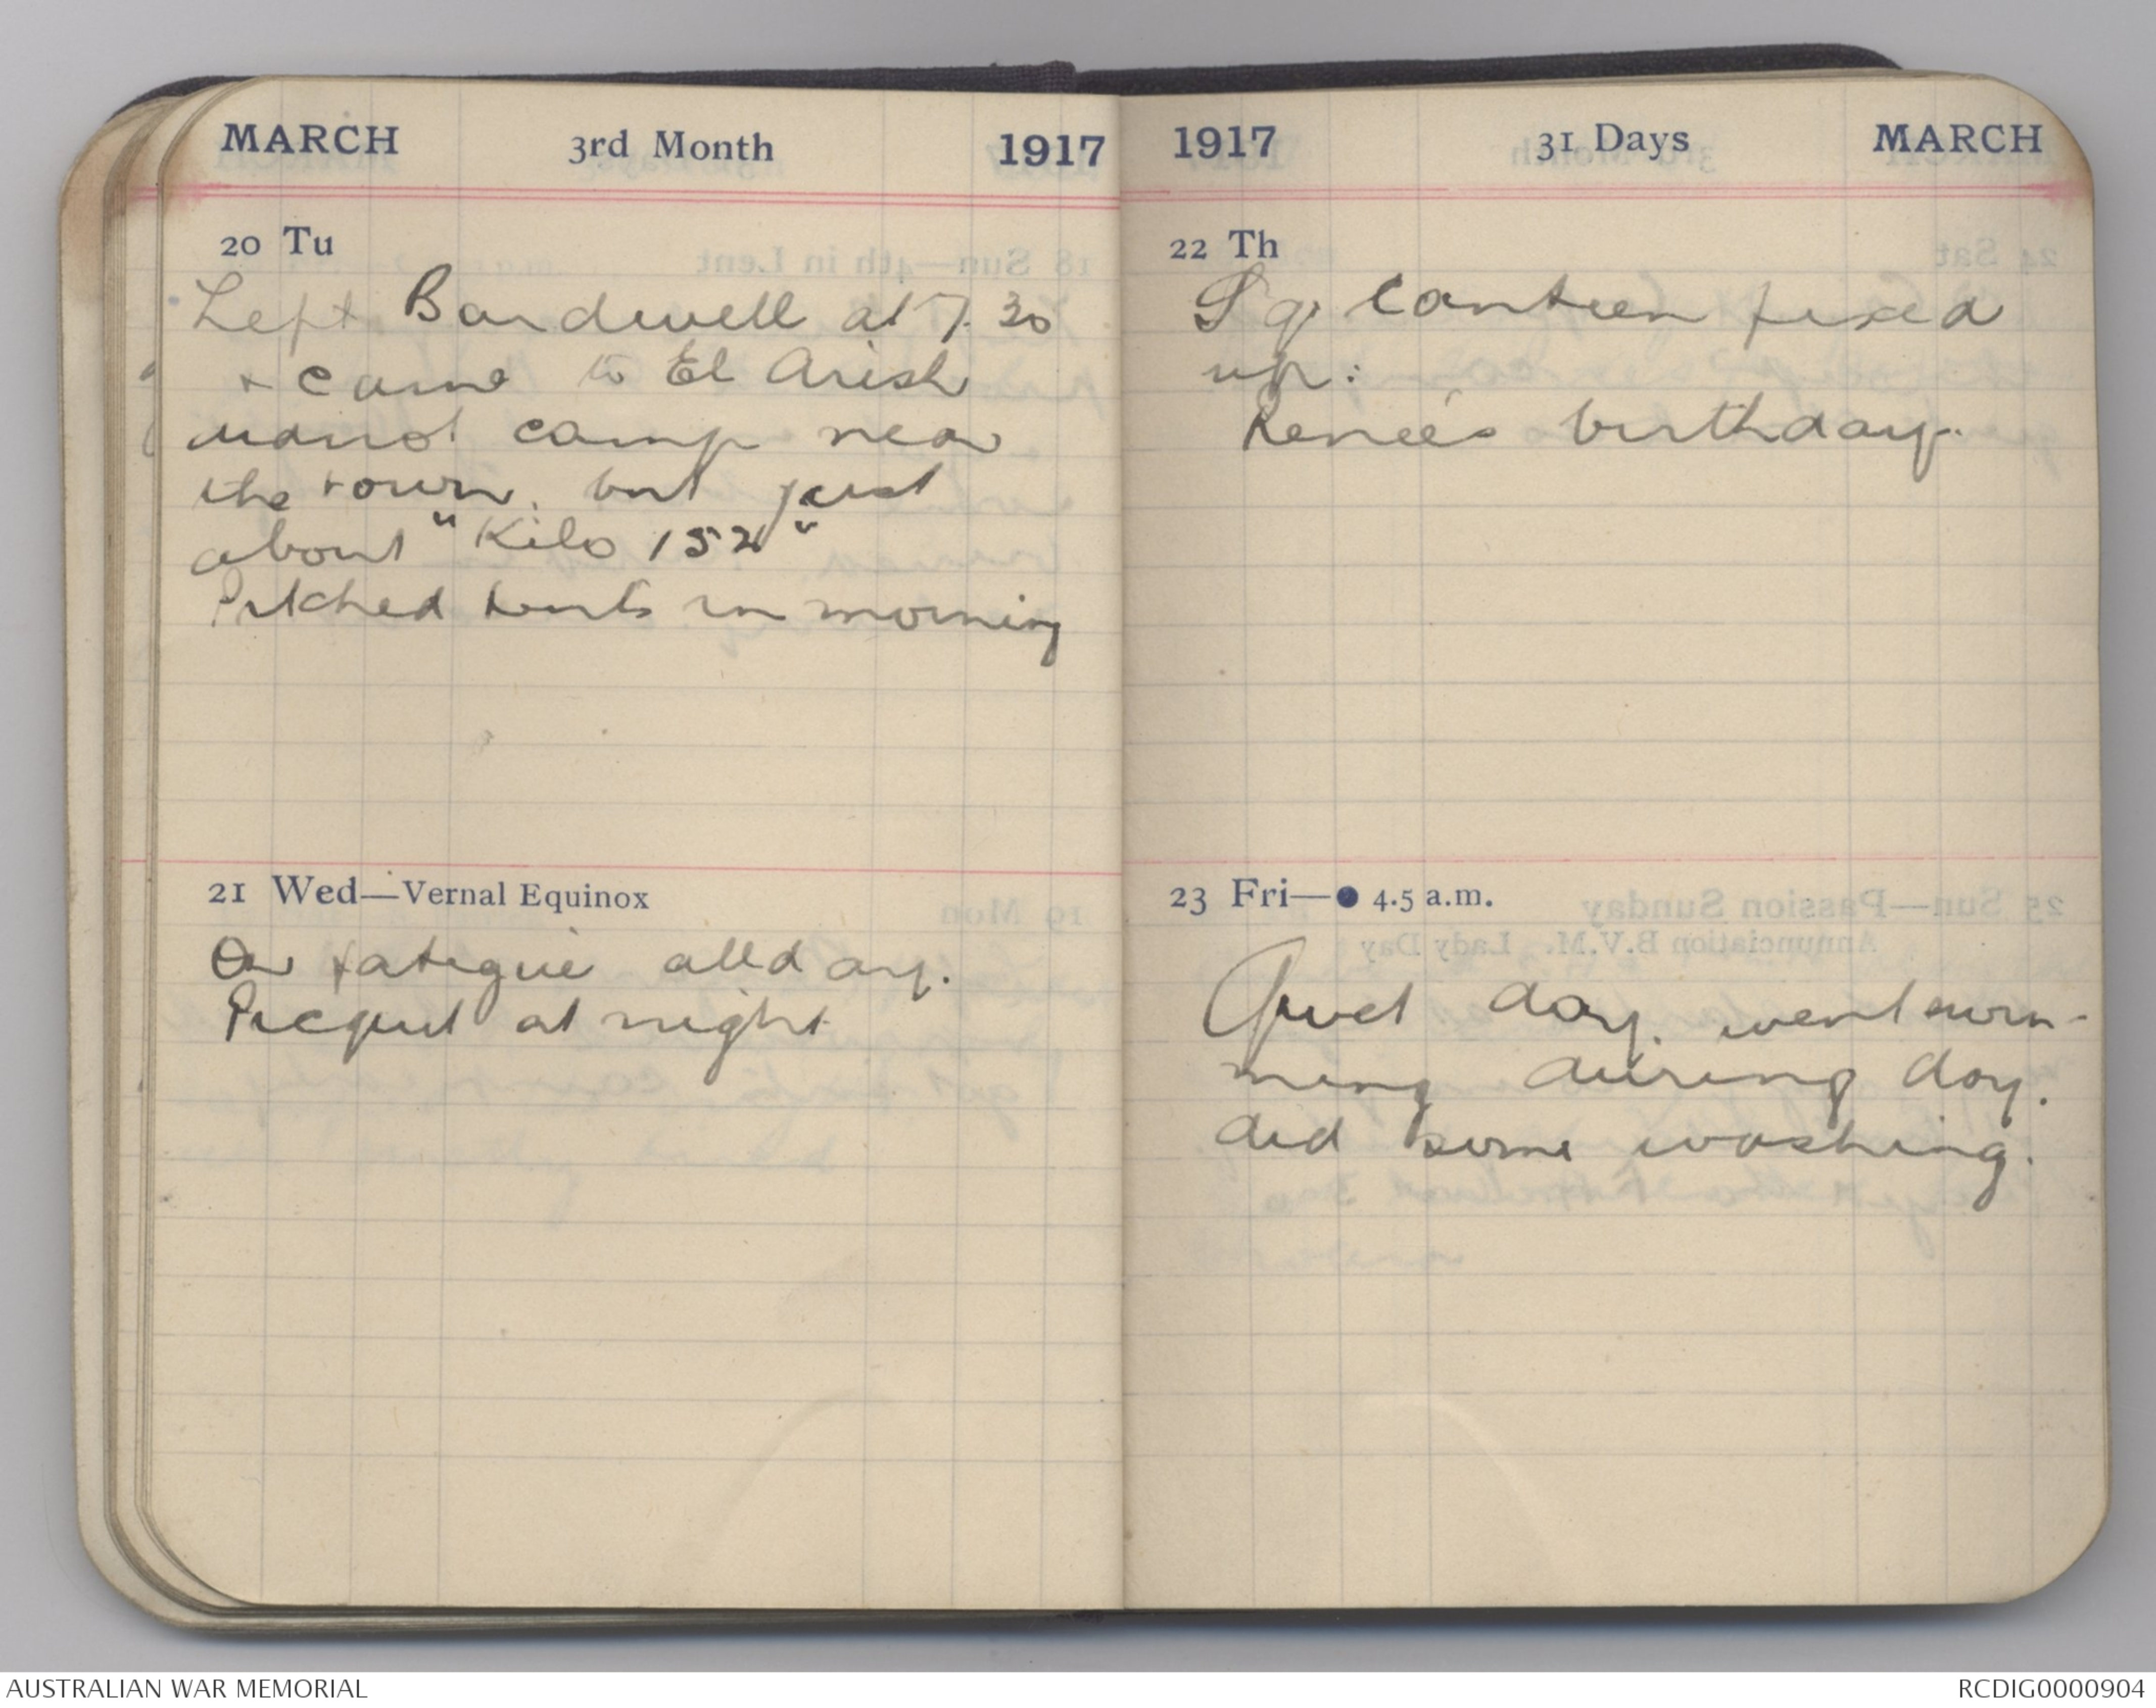 MARCH 3rd Month 1917
20 Tu
Left Bardwell at 7.30
+ came to El Arish
camp near
the town, but just
about "Kilo 152"
Pitched tents in morning
21 Wed—Vernal Equinox
On fatigue all day.
Picquet at night
1917 31 Days MARCH
22 Th
Sq. Canteen fixed
up:
Renée's birthday.
23 Fri—● 4.5 a.m.
Quiet day. went swim-
ming during day.
did some washing.
AUSTRALIAN WAR MEMORIAL
RCDIG0000904